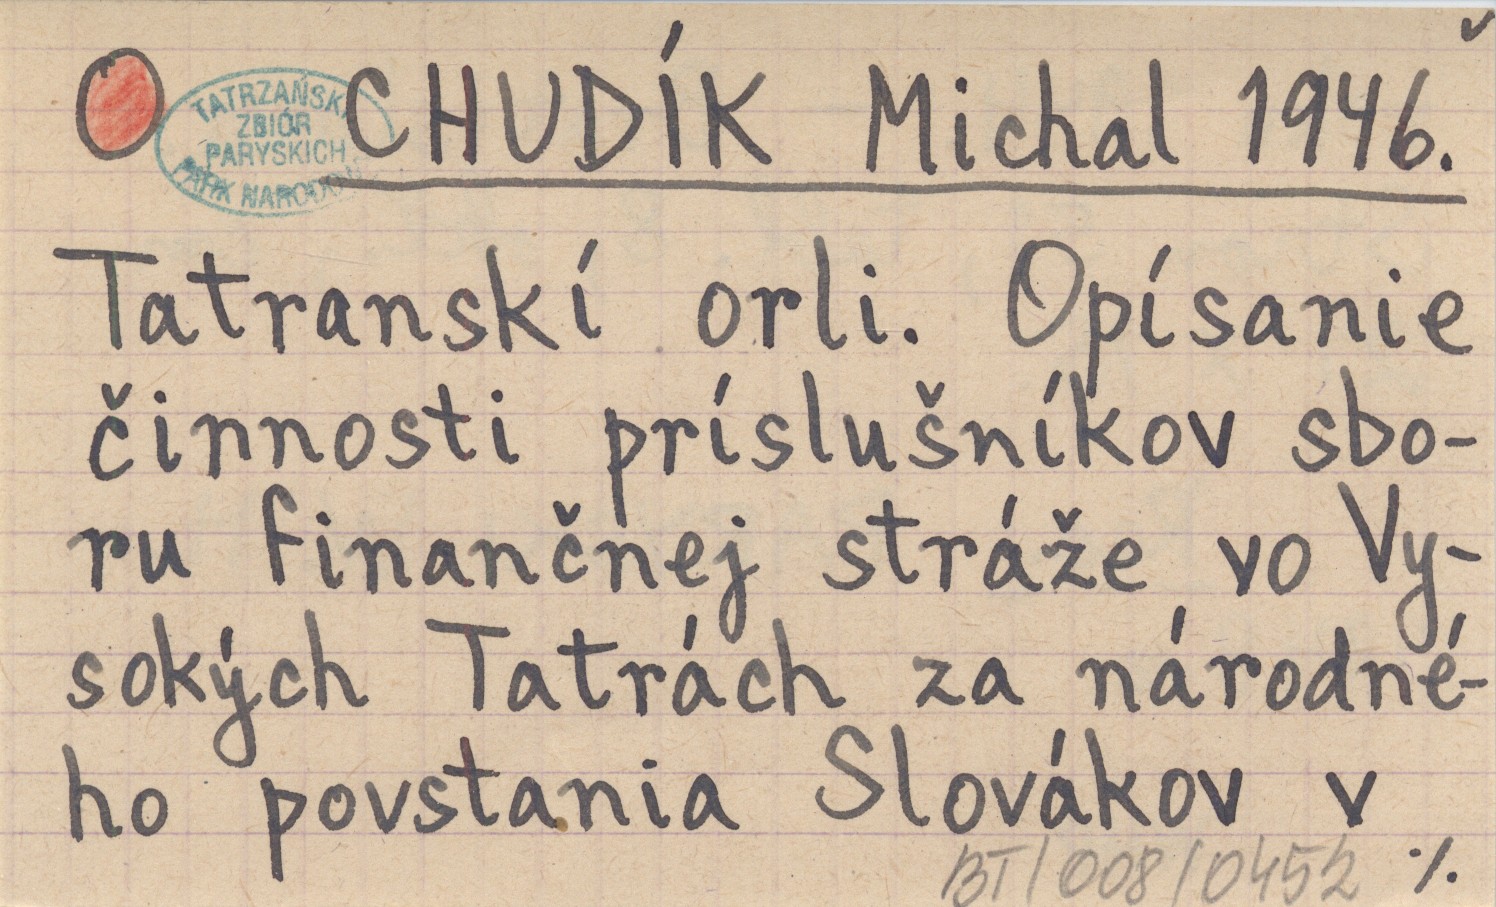 O CHUDÍK Michal 1946.
TATRZAŃSKI
ZBIÓR
PARYSKICH
PARK NARODOWY
Tatranskí orli. Opísanie
činnosti príslušníkov sbo-
ru finančnej stráže vo Vy-
sokých Tatrách za národné-
ho povstania Slovákov v
BT/008/0452 ·/.